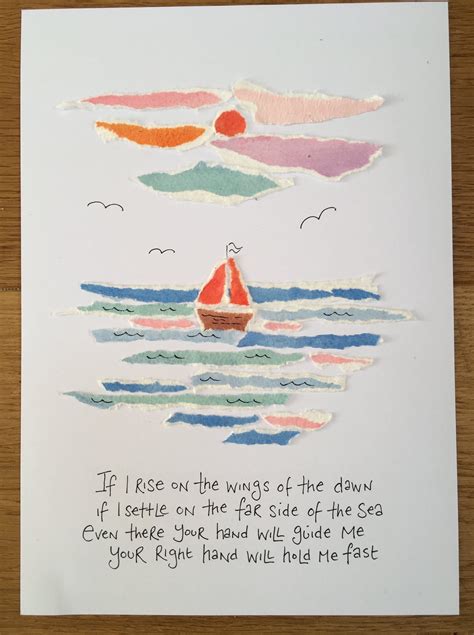 If I RISE ON THE WINGS Of THE dawn
if I SETTLE ON THE faR SIDE Of THE Sea
EVEN THERE YOUR HaNd WILL GUidE ME
YOUR RIGHT HaNd WILL HOLd ME faST